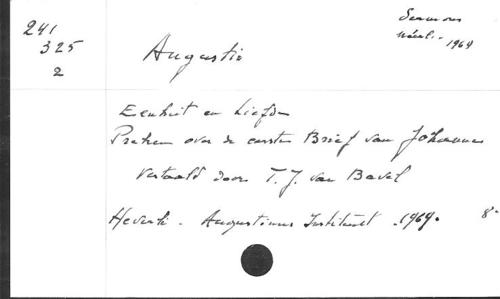 241
325
2
Sermones
Néerl. - 1969
Augustin
Eenheid en Liefde
Preken over de eersten Brief van Johannes
Vertaald door T. J. van Bavel
Heverlé - Augustinus Instituut - 1969. 8°